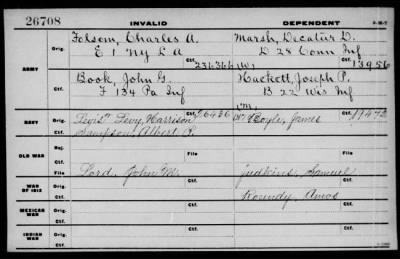 26708 INVALID DEPENDENT 3-M-7
Folsom, Charles A. Marsh, Decatur D.
Orig. E 1 Ny L A D 28 Conn Inf
ARMY Ctf. 236366 Ctf. 13956
Book, John G. Hackett, Joseph P.
F 134 Pa Inf B 22 Wis Inf
NAVY Orig. Levy, Harrison 26436 Coyle, James
Ctf. Sampson, Albert P.
OLD WAR Inj.
Ctf. File File
WAR OF 1812 Orig. Lord, John Judkins, Samuel
Ctf. Roundy, Amos
MEXICAN WAR Orig.
Ctf. Ctf.
INDIAN WAR Orig.
Ctf. Ctf.